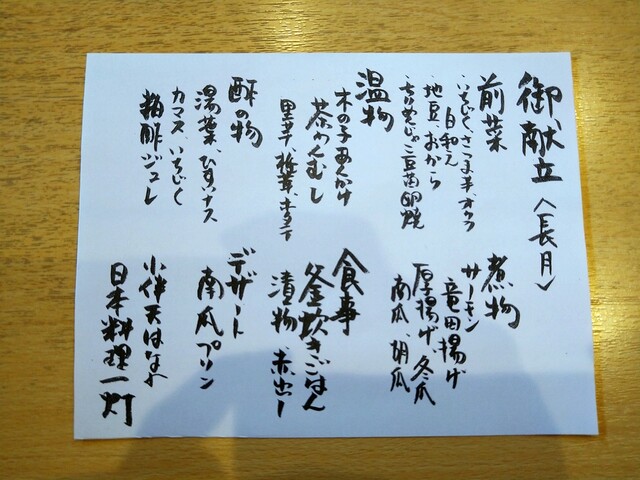 御献立〈長月〉
前菜
いちじく、さつま芋、オクラ
白和え
地豆、おから
ちりめんじゃこ豆苗卵焼
温物
木の子あんかけ
茶わんむし
里芋、椎茸、ホタテ
酢の物
湯葉、ひすいナス
カマス、いちじく
粕酢ジュレ
煮物
サーモン
竜田揚げ
厚揚げ、冬瓜
南瓜、胡瓜
食事
釜炊きごはん
漬物、赤出し
デザート
南瓜プリン
小伴天はなれ
日本料理一灯